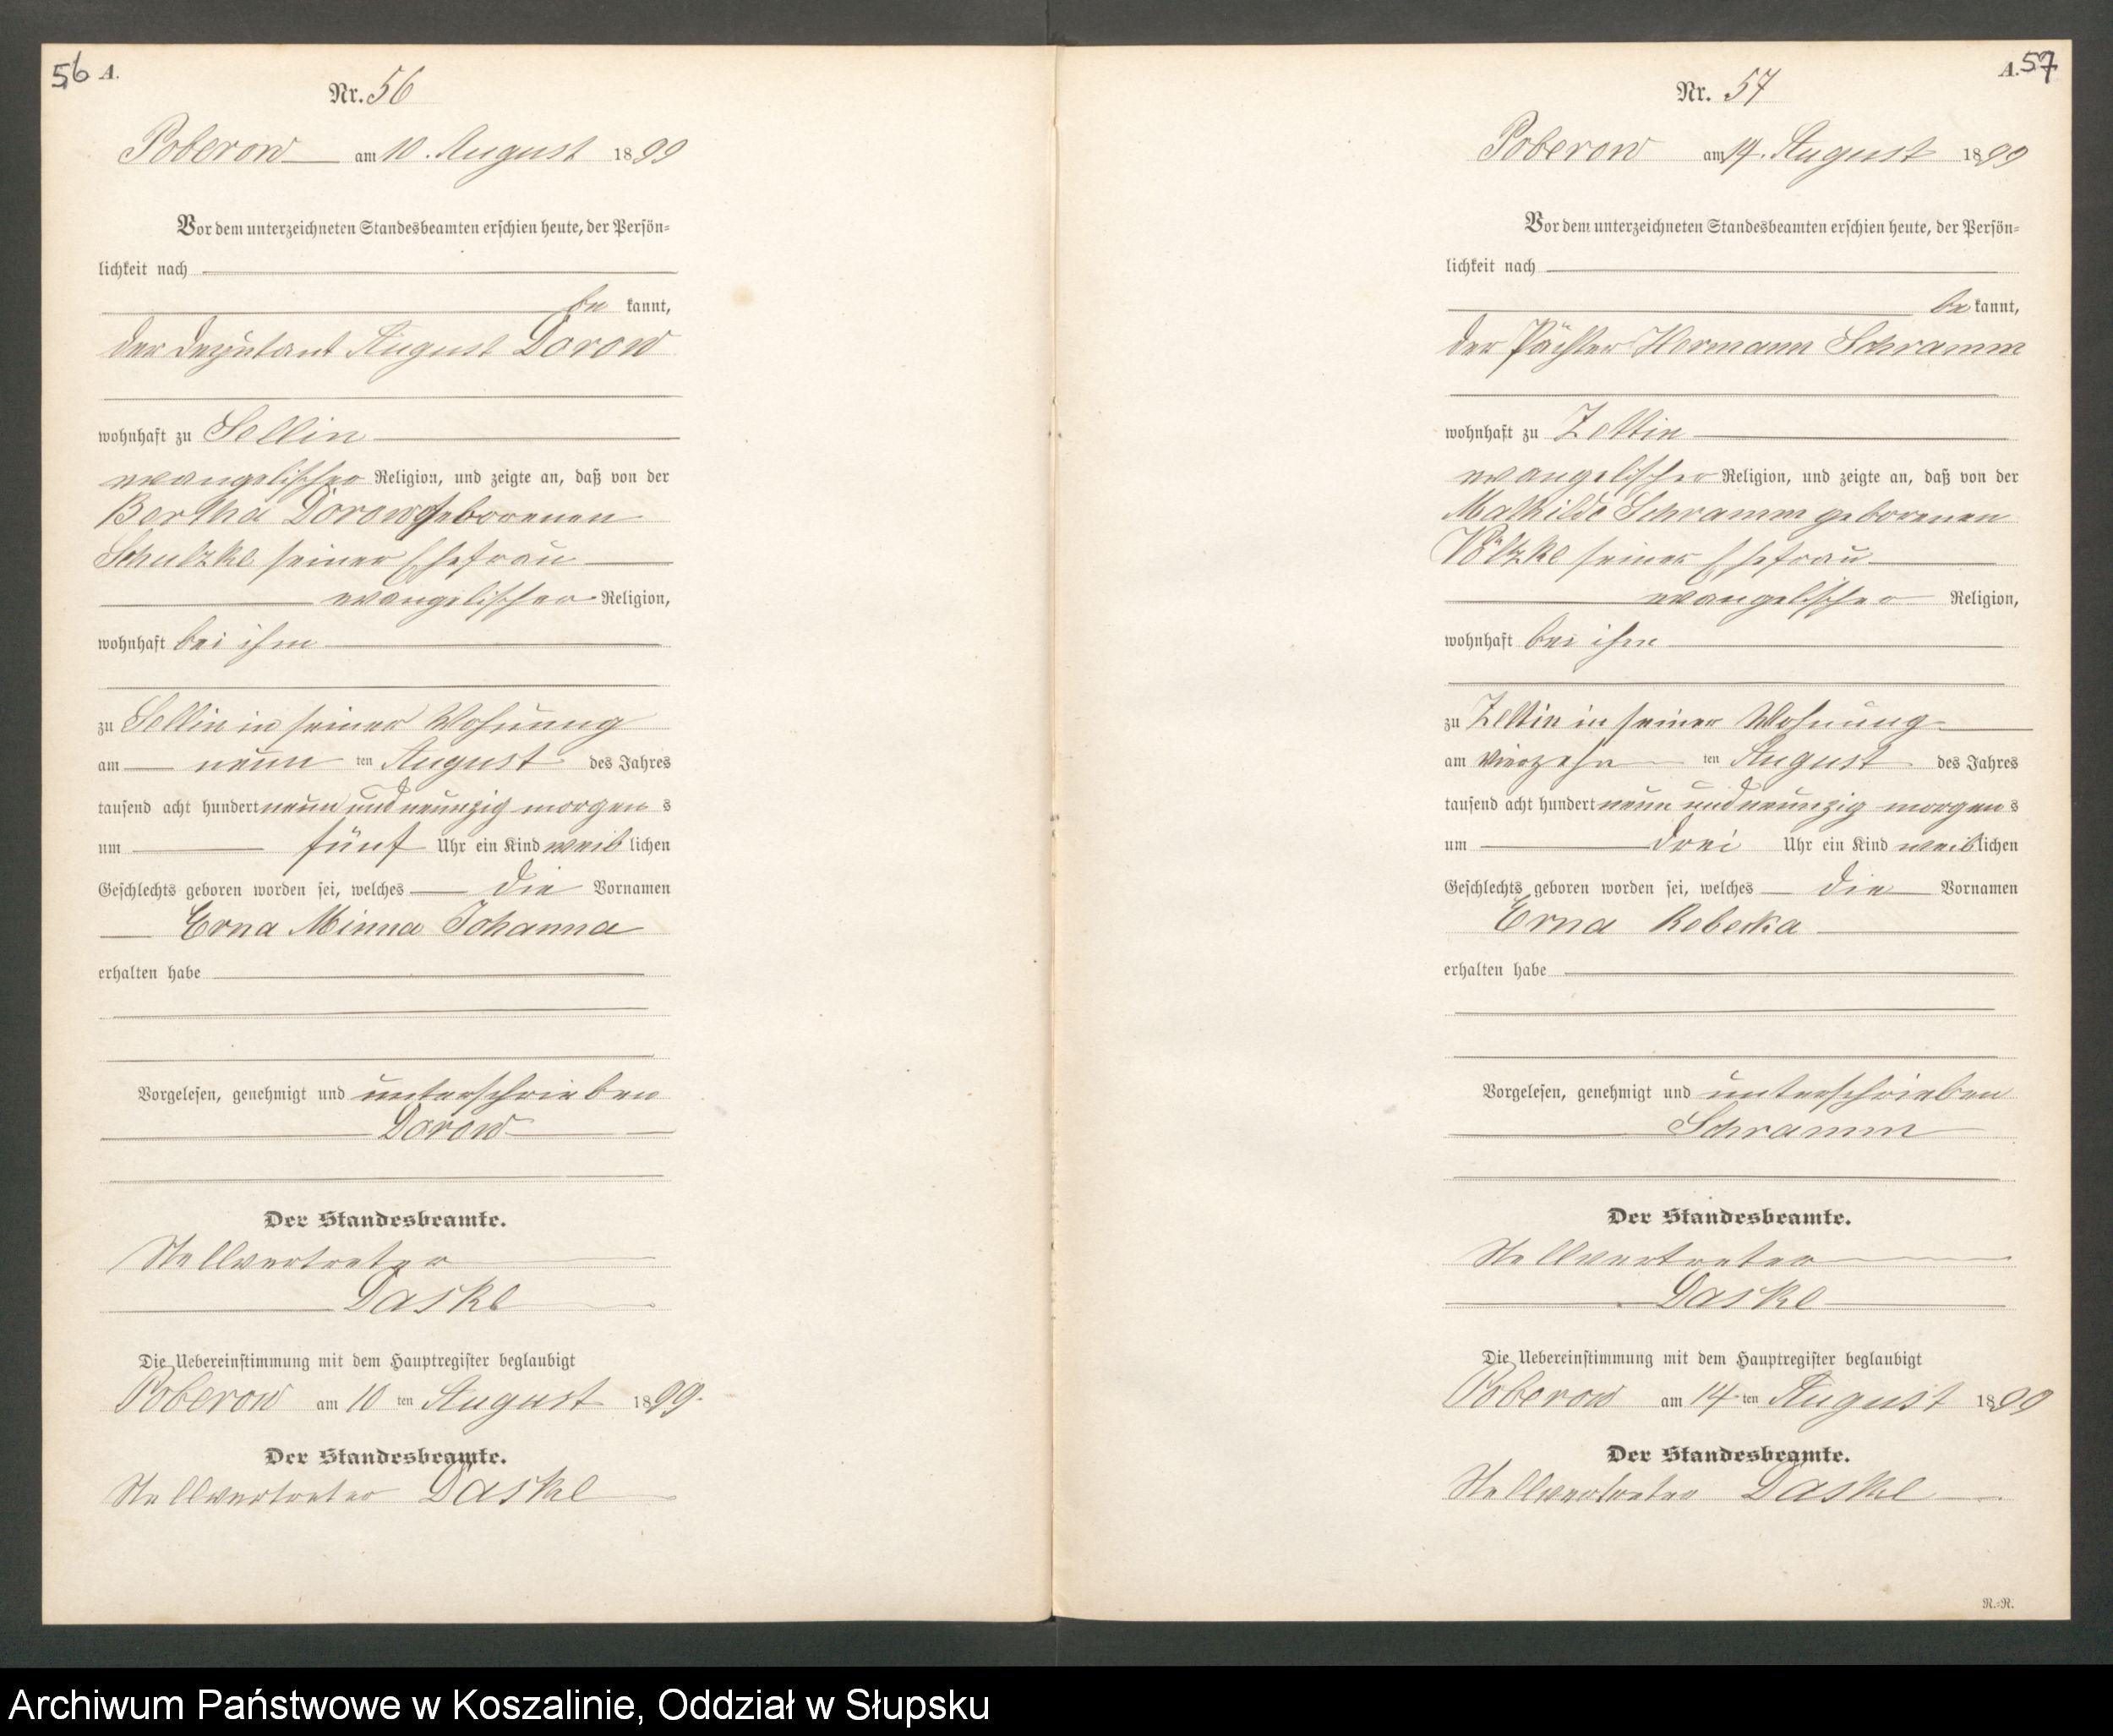 56 A.
Nr. 56
Poberow am 10. August 1899
Vor dem unterzeichneten Standesbeamten erschien heute, der Persön-
lichkeit nach
be kannt,
der Deputant August Dorow
wohnhaft zu Sellin
evangelischer Religion, und zeigte an, daß von der
Bertha Dorow geborenen
Schulzke seiner Ehefrau
evangelischer Religion,
wohnhaft bei ihm
zu Sellin in seiner Wohnung
am neun ten August des Jahres
tausend acht hundert neun und neunzig morgen s
um fünf Uhr ein Kind weib lichen
Geschlechts geboren worden sei, welches die Vornamen
Erna Minna Johanna
erhalten habe
Vorgelesen, genehmigt und unterschrieben
Dorow
Der Standesbeamte.
Stellvertreter
Daske
Die Uebereinstimmung mit dem Hauptregister beglaubigt
Poberow am 10 ten August 1899.
Der Standesbeamte.
Stellvertreter Daske
A. 57
Nr. 57
Poberow am 14. August 1899
Vor dem unterzeichneten Standesbeamten erschien heute, der Persön-
lichkeit nach
be kannt,
der Pächter Hermann Schramm
wohnhaft zu Zettin
evangelischer Religion, und zeigte an, daß von der
Mathilde Schramm geborenen
Völzke seiner Ehefrau
evangelischer Religion,
wohnhaft bei ihm
zu Zettin in seiner Wohnung
am vierzehn ten August des Jahres
tausend acht hundert neun und neunzig morgen s
um drei Uhr ein Kind weib lichen
Geschlechts geboren worden sei, welches die Vornamen
Erna Rebecka
erhalten habe
Vorgelesen, genehmigt und unterschrieben
Schramm
Der Standesbeamte.
Stellvertreter
Daske
Die Uebereinstimmung mit dem Hauptregister beglaubigt
Poberow am 14 ten August 1899
Der Standesbeamte.
Stellvertreter Daske
R.=R.
Archiwum Państwowe w Koszalinie, Oddział w Słupsku